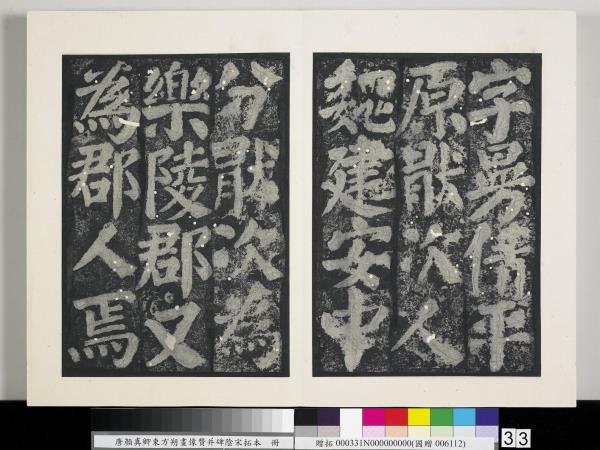 字曼倩平
原猒次人
魏建安中
分猒次為
樂陵郡又
為郡人焉
唐顏真卿東方朔畫像贊并碑陰宋拓本 冊
贈拓 000331N000000000(國贈 006112)
33